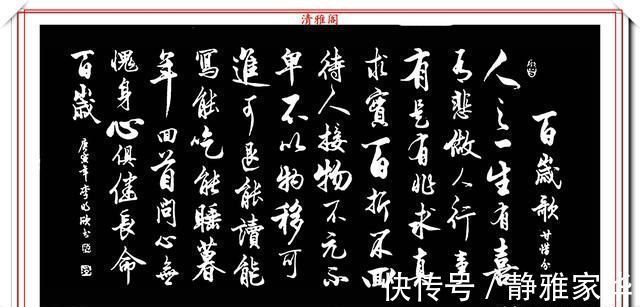 清雅阁
百歲歌 甘惜分
人之一生有喜
有悲做人行事
有是有非求真
求實百折不回
待人接物不亢不
卑不以物移可
進可退能讀能
寫能吃能睡暮
年回首問心無
愧身心俱健長命
百歲
庚寅年李
快传号/静雅家